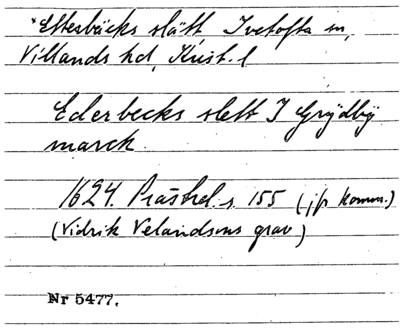 *Ettesbäcks slätt Ivetofta sn,
Villands hd, Krist. l
Ederbecks slett I Grÿdbÿ
marck.
1624. Prästrel. s 155 (jfr Komm.)
(Vidrik Velandsons grav)
Nr 5477.